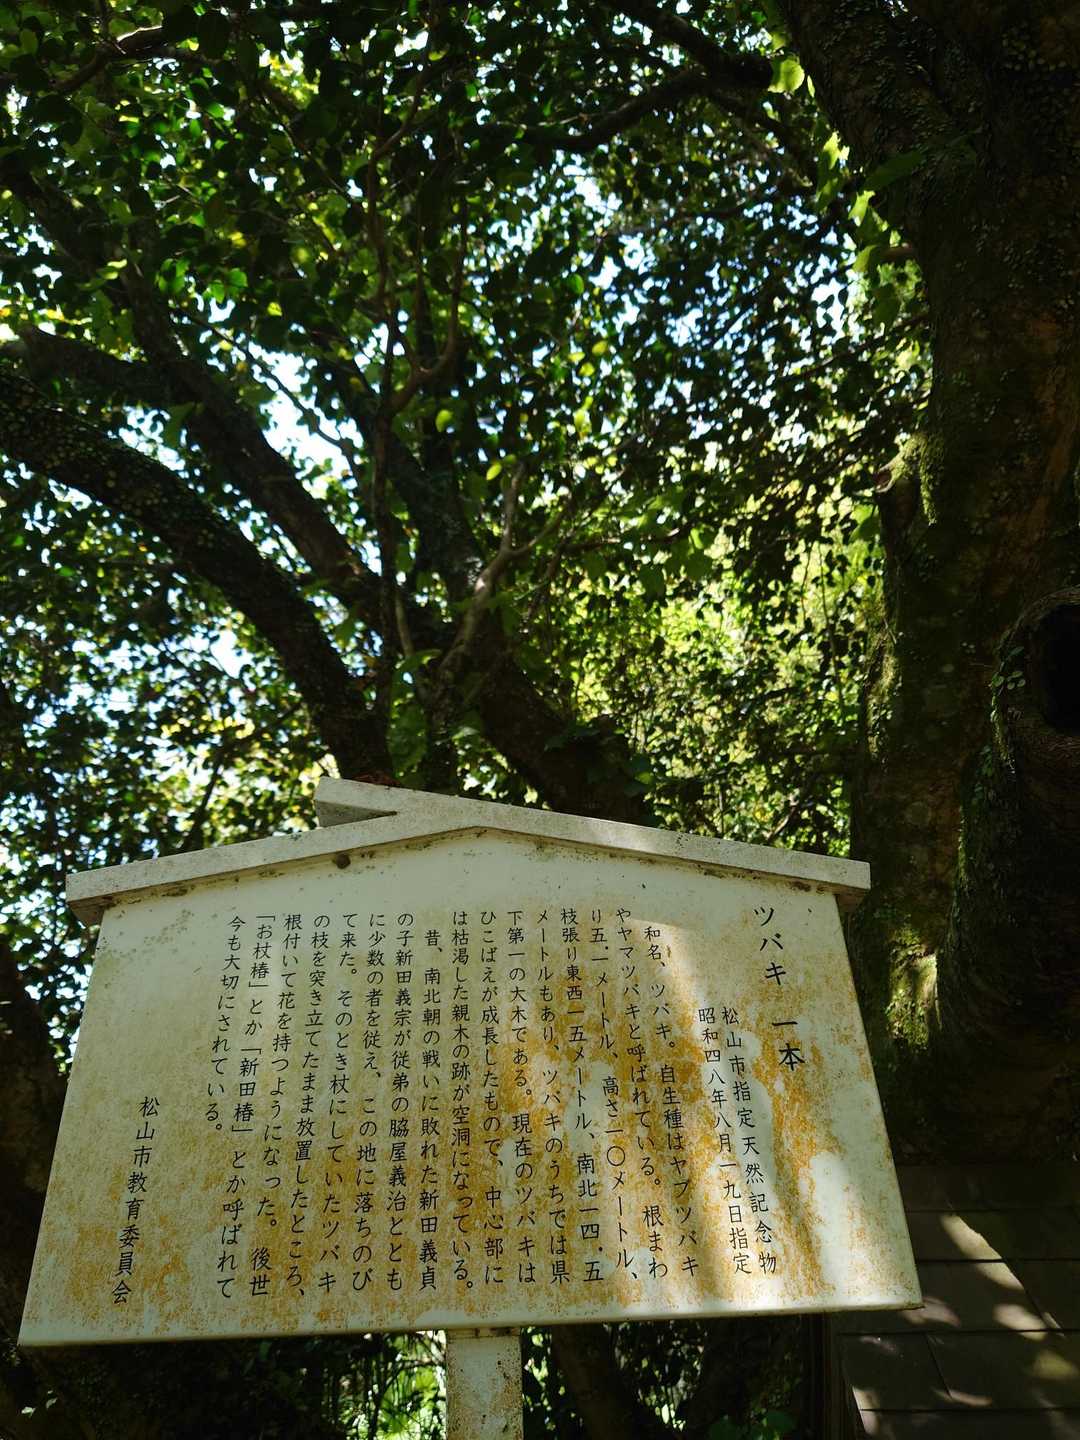 ツバキ 一本
松山市指定天然記念物
昭和四八年八月一九日指定
和名、ツバキ。自生種はヤブツバキ
やヤマツバキと呼ばれている。根まわ
り五・一メートル、高さ一〇メートル、
枝張り東西一五メートル、南北一四・五
メートルもあり、ツバキのうちでは県
下第一の大木である。現在のツバキは
ひこばえが成長したもので、中心部に
は枯渇した親木の跡が空洞になっている。
昔、南北朝の戦いに敗れた新田義貞
の子新田義宗が従弟の脇屋義治ととも
に少数の者を従え、この地に落ちのび
て来た。そのとき杖にしていたツバキ
の枝を突き立てたまま放置したところ、
根付いて花を持つようになった。後世
「お杖椿」とか「新田椿」とか呼ばれて
今も大切にされている。
松山市教育委員会